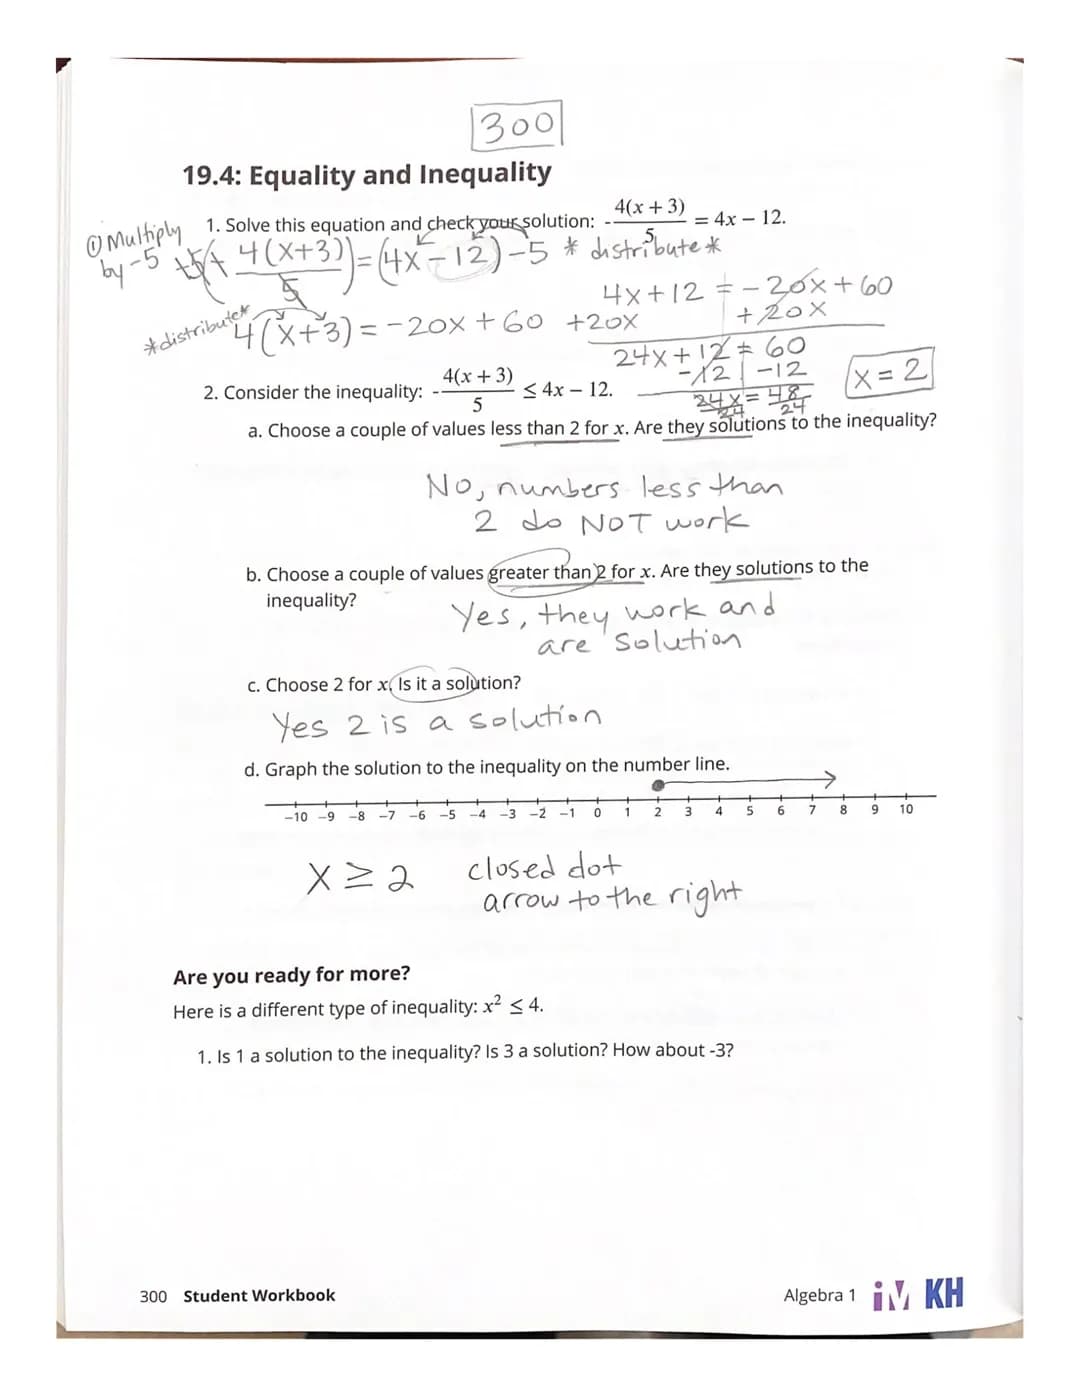 300
19.4: Equality and Inequality
① Multiply by -5
1. Solve this equation and check your solution: -4(x + 3)/5 = 4x – 12.
-5(-4(x+3)/5) = (4x-12)-5 * distribute *
4x+12 = -20x+60
*distribute* 4(x+3) = -20x+60 +20x +20x
24x+12 = 60
-12 -12
24x = 48
24 24
x = 2
2. Consider the inequality: -4(x + 3)/5 ≤ 4x – 12.
a. Choose a couple of values less than 2 for x. Are they solutions to the inequality?
No, numbers less than
2 do NOT work
b. Choose a couple of values greater than 2 for x. Are they solutions to the
inequality?
Yes, they work and
are solution
c. Choose 2 for x. Is it a solution?
Yes 2 is a solution
d. Graph the solution to the inequality on the number line.
–10 –9 –8 –7 –6 –5 –4 –3 –2 –1 0 1 2 3 4 5 6 7 8 9 10
x ≥ 2 closed dot
arrow to the right
Are you ready for more?
Here is a different type of inequality: x² ≤ 4.
1. Is 1 a solution to the inequality? Is 3 a solution? How about -3?
300 Student Workbook
Algebra 1 IM KH